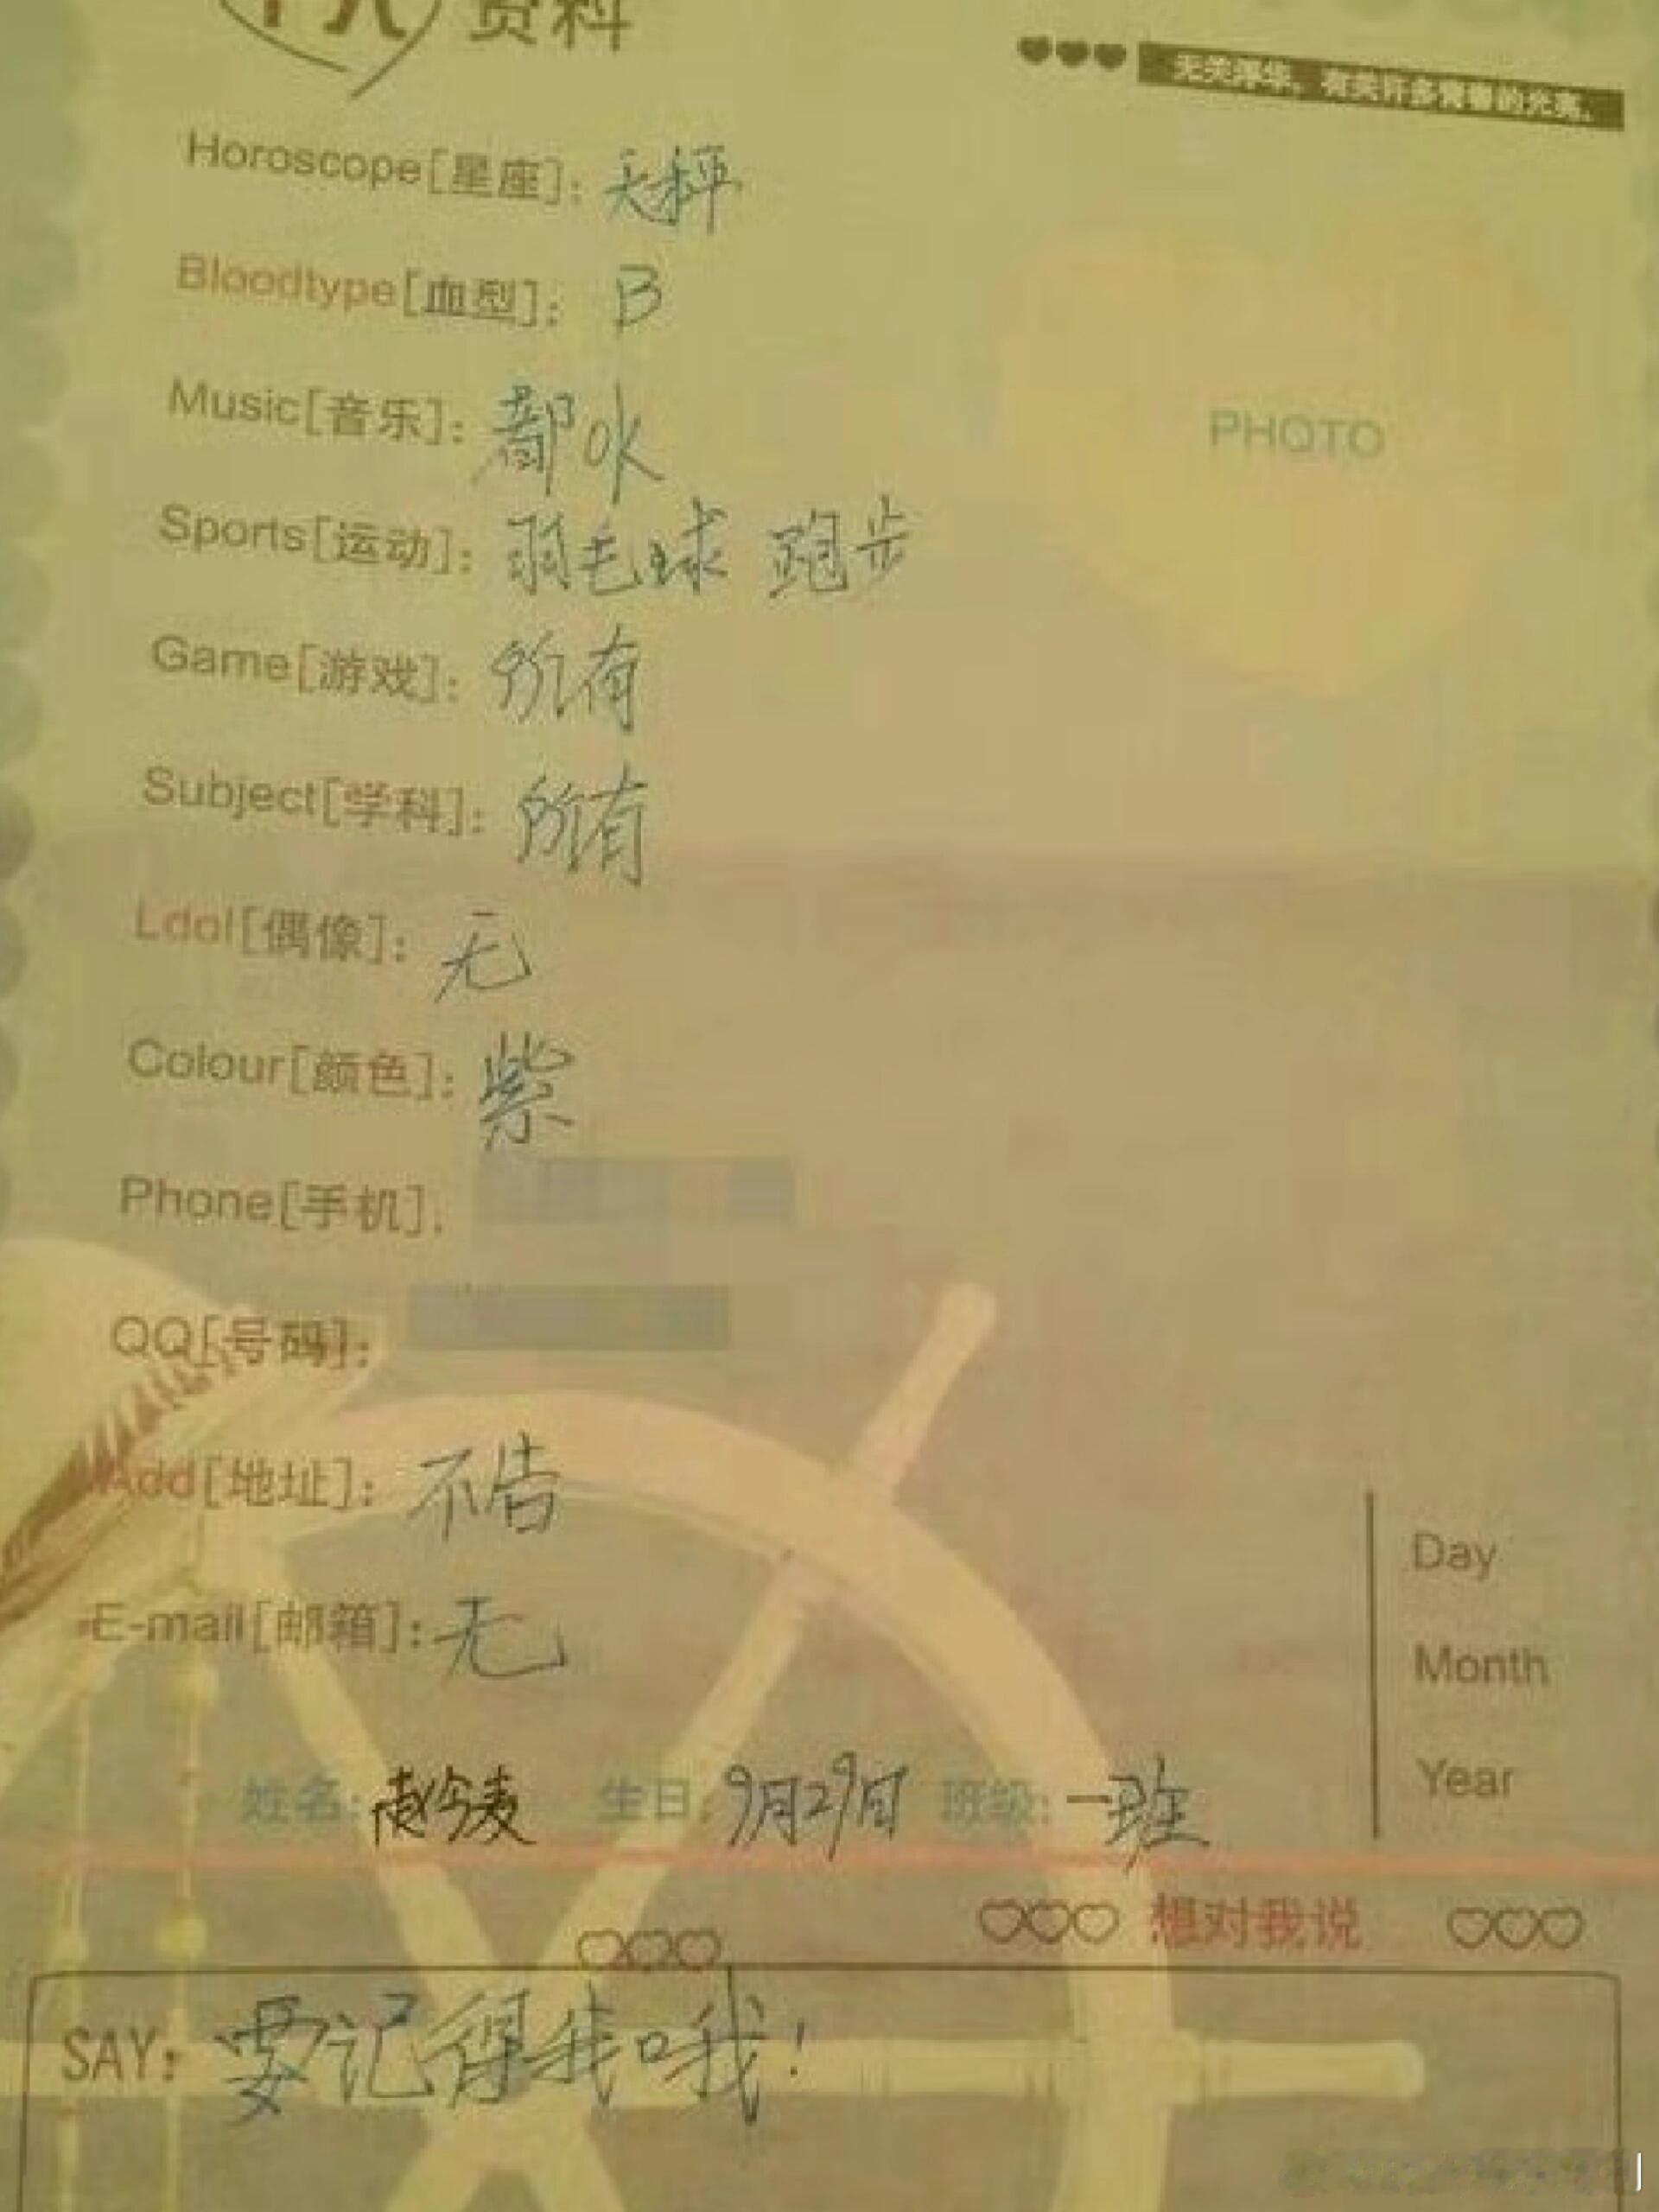 资料
无关浮华，有关许多青春的光亮。
Horoscope[星座]：天秤
Bloodtype[血型]：B
Music[音乐]：都听
Sports[运动]：羽毛球 跑步
Game[游戏]：所有
Subject[学科]：所有
Ldol[偶像]：无
Colour[颜色]：紫
Phone[手机]：
QQ[号码]：
Add[地址]：不告
E-mail[邮箱]：无
Day
Month
Year
姓名：赵今麦 生日：9月29日 班级：一班
想对我说
SAY：要记得我哦！